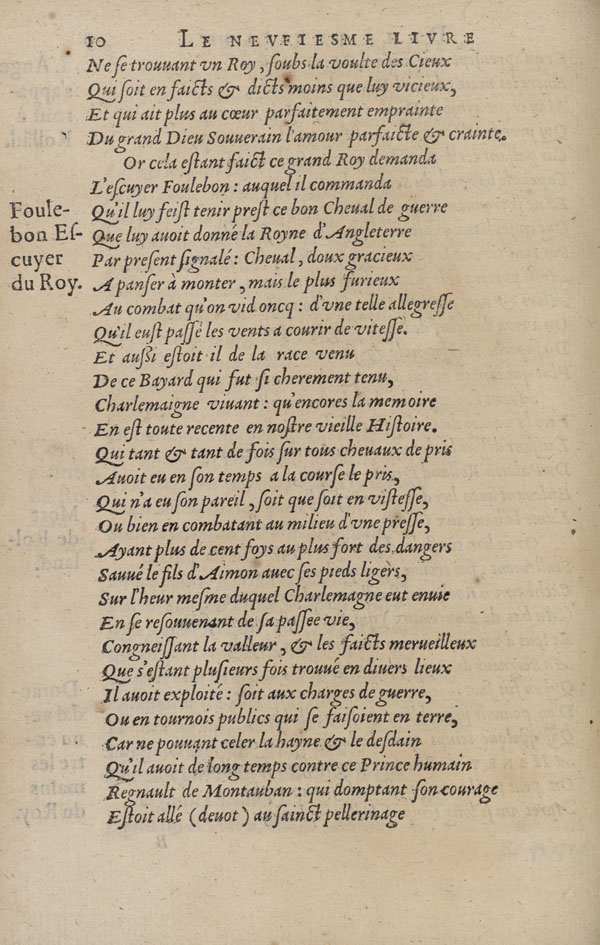 10 LE NEVFIESME LIVRE
Ne ſe trouuant vn Roy, ſoubs la voulte des Cieux
Qui ſoit en faicts & dicts moins que luy vicieux,
Et qui ait plus au cœur parfaitement emprainte
Du grand Dieu Souuerain l'amour parfaicte & crainte.
Or cela eſtant faict ce grand Roy demanda
L'eſcuyer Foulebon : auquel il commanda
Foule-
bon Eſ-
cuyer
du Roy.
Qu'il luy feiſt tenir preſt ce bon Cheual de guerre
Que luy auoit donné la Royne d'Angleterre
Par preſent ſignalé : Cheual, doux gracieux
A panſer à monter, mais le plus furieux
Au combat qu'on vid oncq : d'vne telle allegreſſe
Qu'il euſt paſſé les vents a courir de viteſſe.
Et auſſi eſtoit il de la race venu
De ce Bayard qui fut ſi cherement tenu,
Charlemaigne viuant : qu'encores la memoire
En eſt toute recente en noſtre vieille Hiſtoire.
Qui tant & tant de fois ſur tous cheuaux de pris
Auoit eu en ſon temps a la courſe le pris,
Qui n'a eu ſon pareil, ſoit que ſoit en viſteſſe,
Ou bien en combatant au milieu d'vne preſſe,
Ayant plus de cent foys au plus fort des dangers
Sauué le fils d'Aimon auec ſes pieds ligers,
Sur l'heur meſme duquel Charlemagne eut enuie
En ſe reſouuenant de ſa paſſee vie,
Congneiſſant la valleur, & les faicts merueilleux
Que s'eſtant pluſieurs fois trouué en diuers lieux
Il auoit exploité : ſoit aux charges de guerre,
Ou en tournois publics qui ſe faiſoient en terre,
Car ne pouuant celer la hayne & le deſdain
Qu'il auoit de long temps contre ce Prince humain
Regnault de Montauban : qui domptant ſon courage
Eſtoit allé (deuot) au ſainct pellerinage